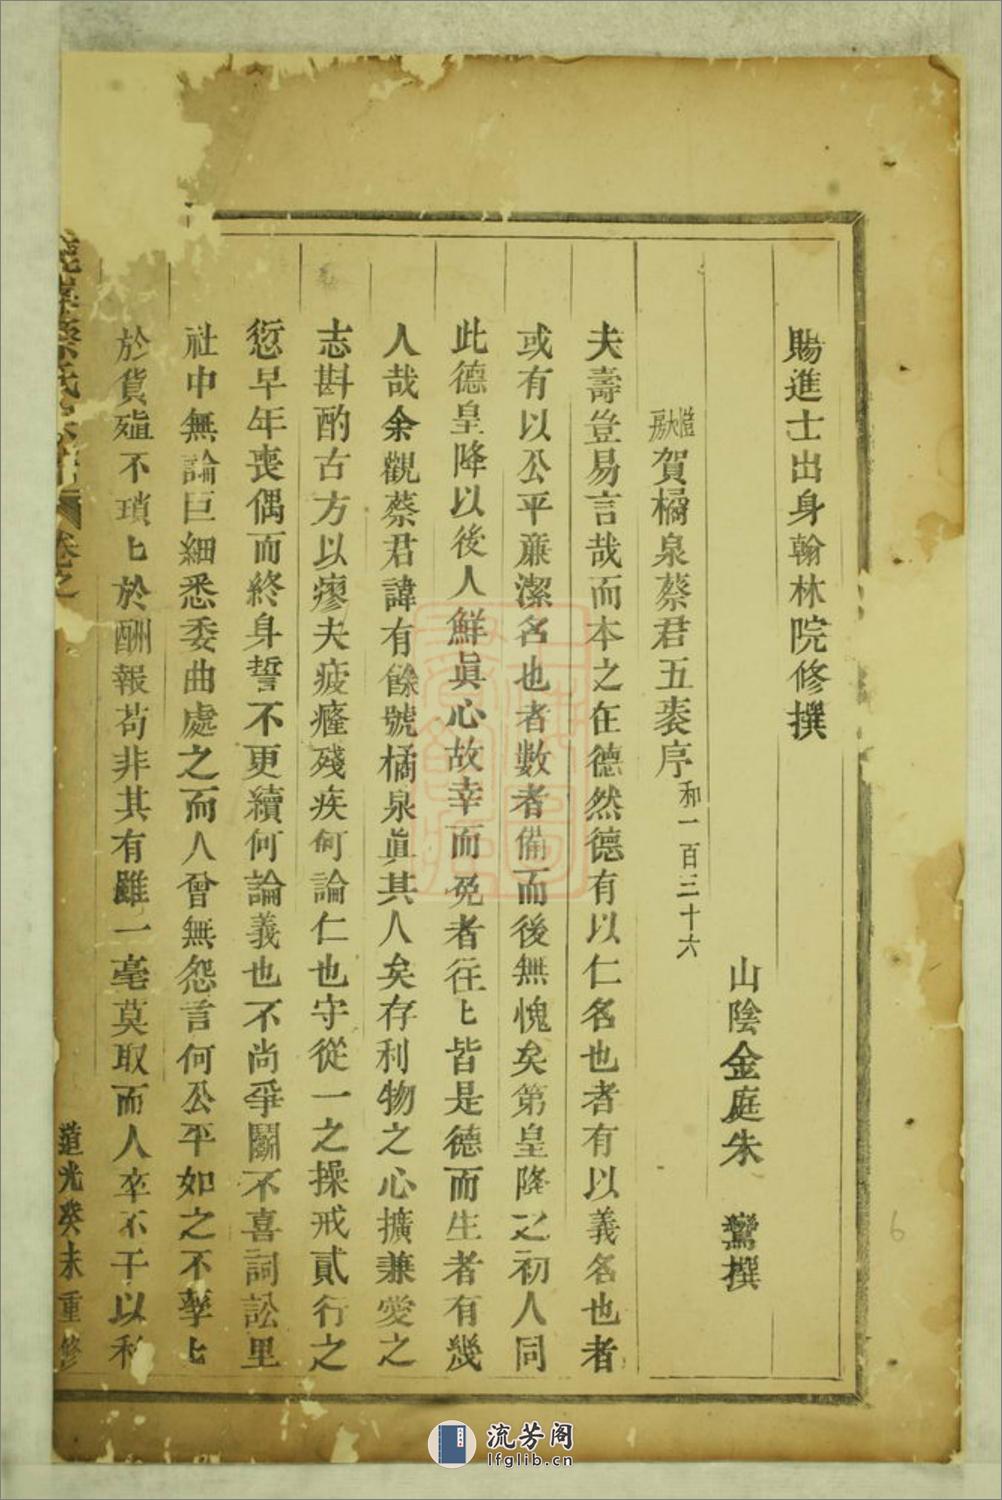 賜進士出身翰林院修撰
山陰金庭朱 鸞撰
大房賀橘泉蔡君五袠序和一百三十六
夫壽豈易言哉而本之在德然德有以仁名也者有以義名也者
或有以公平亷潔名也者數者備而後無愧矣第皇降之初人同
此德皇降以後人鮮眞心故幸而免者往匕皆是德而生者有幾
人哉余觀蔡君諱有餘號橘泉眞其人矣存利物之心擴兼愛之
志斟酌古方以瘳夫疲癃殘疾何論仁也守從一之操戒貳行之
愆早年喪偶而終身誓不更續何論義也不尚爭鬭不喜詞訟里
社中無論巨細悉委曲處之而人曾無怨言何公平如之不孳匕
於貨殖不瑣匕於酬報苟非其有雖一毫莫取而人卒不干以利
蔡氏 卷之
道光癸未重修
流芳阁
lfglib.cn